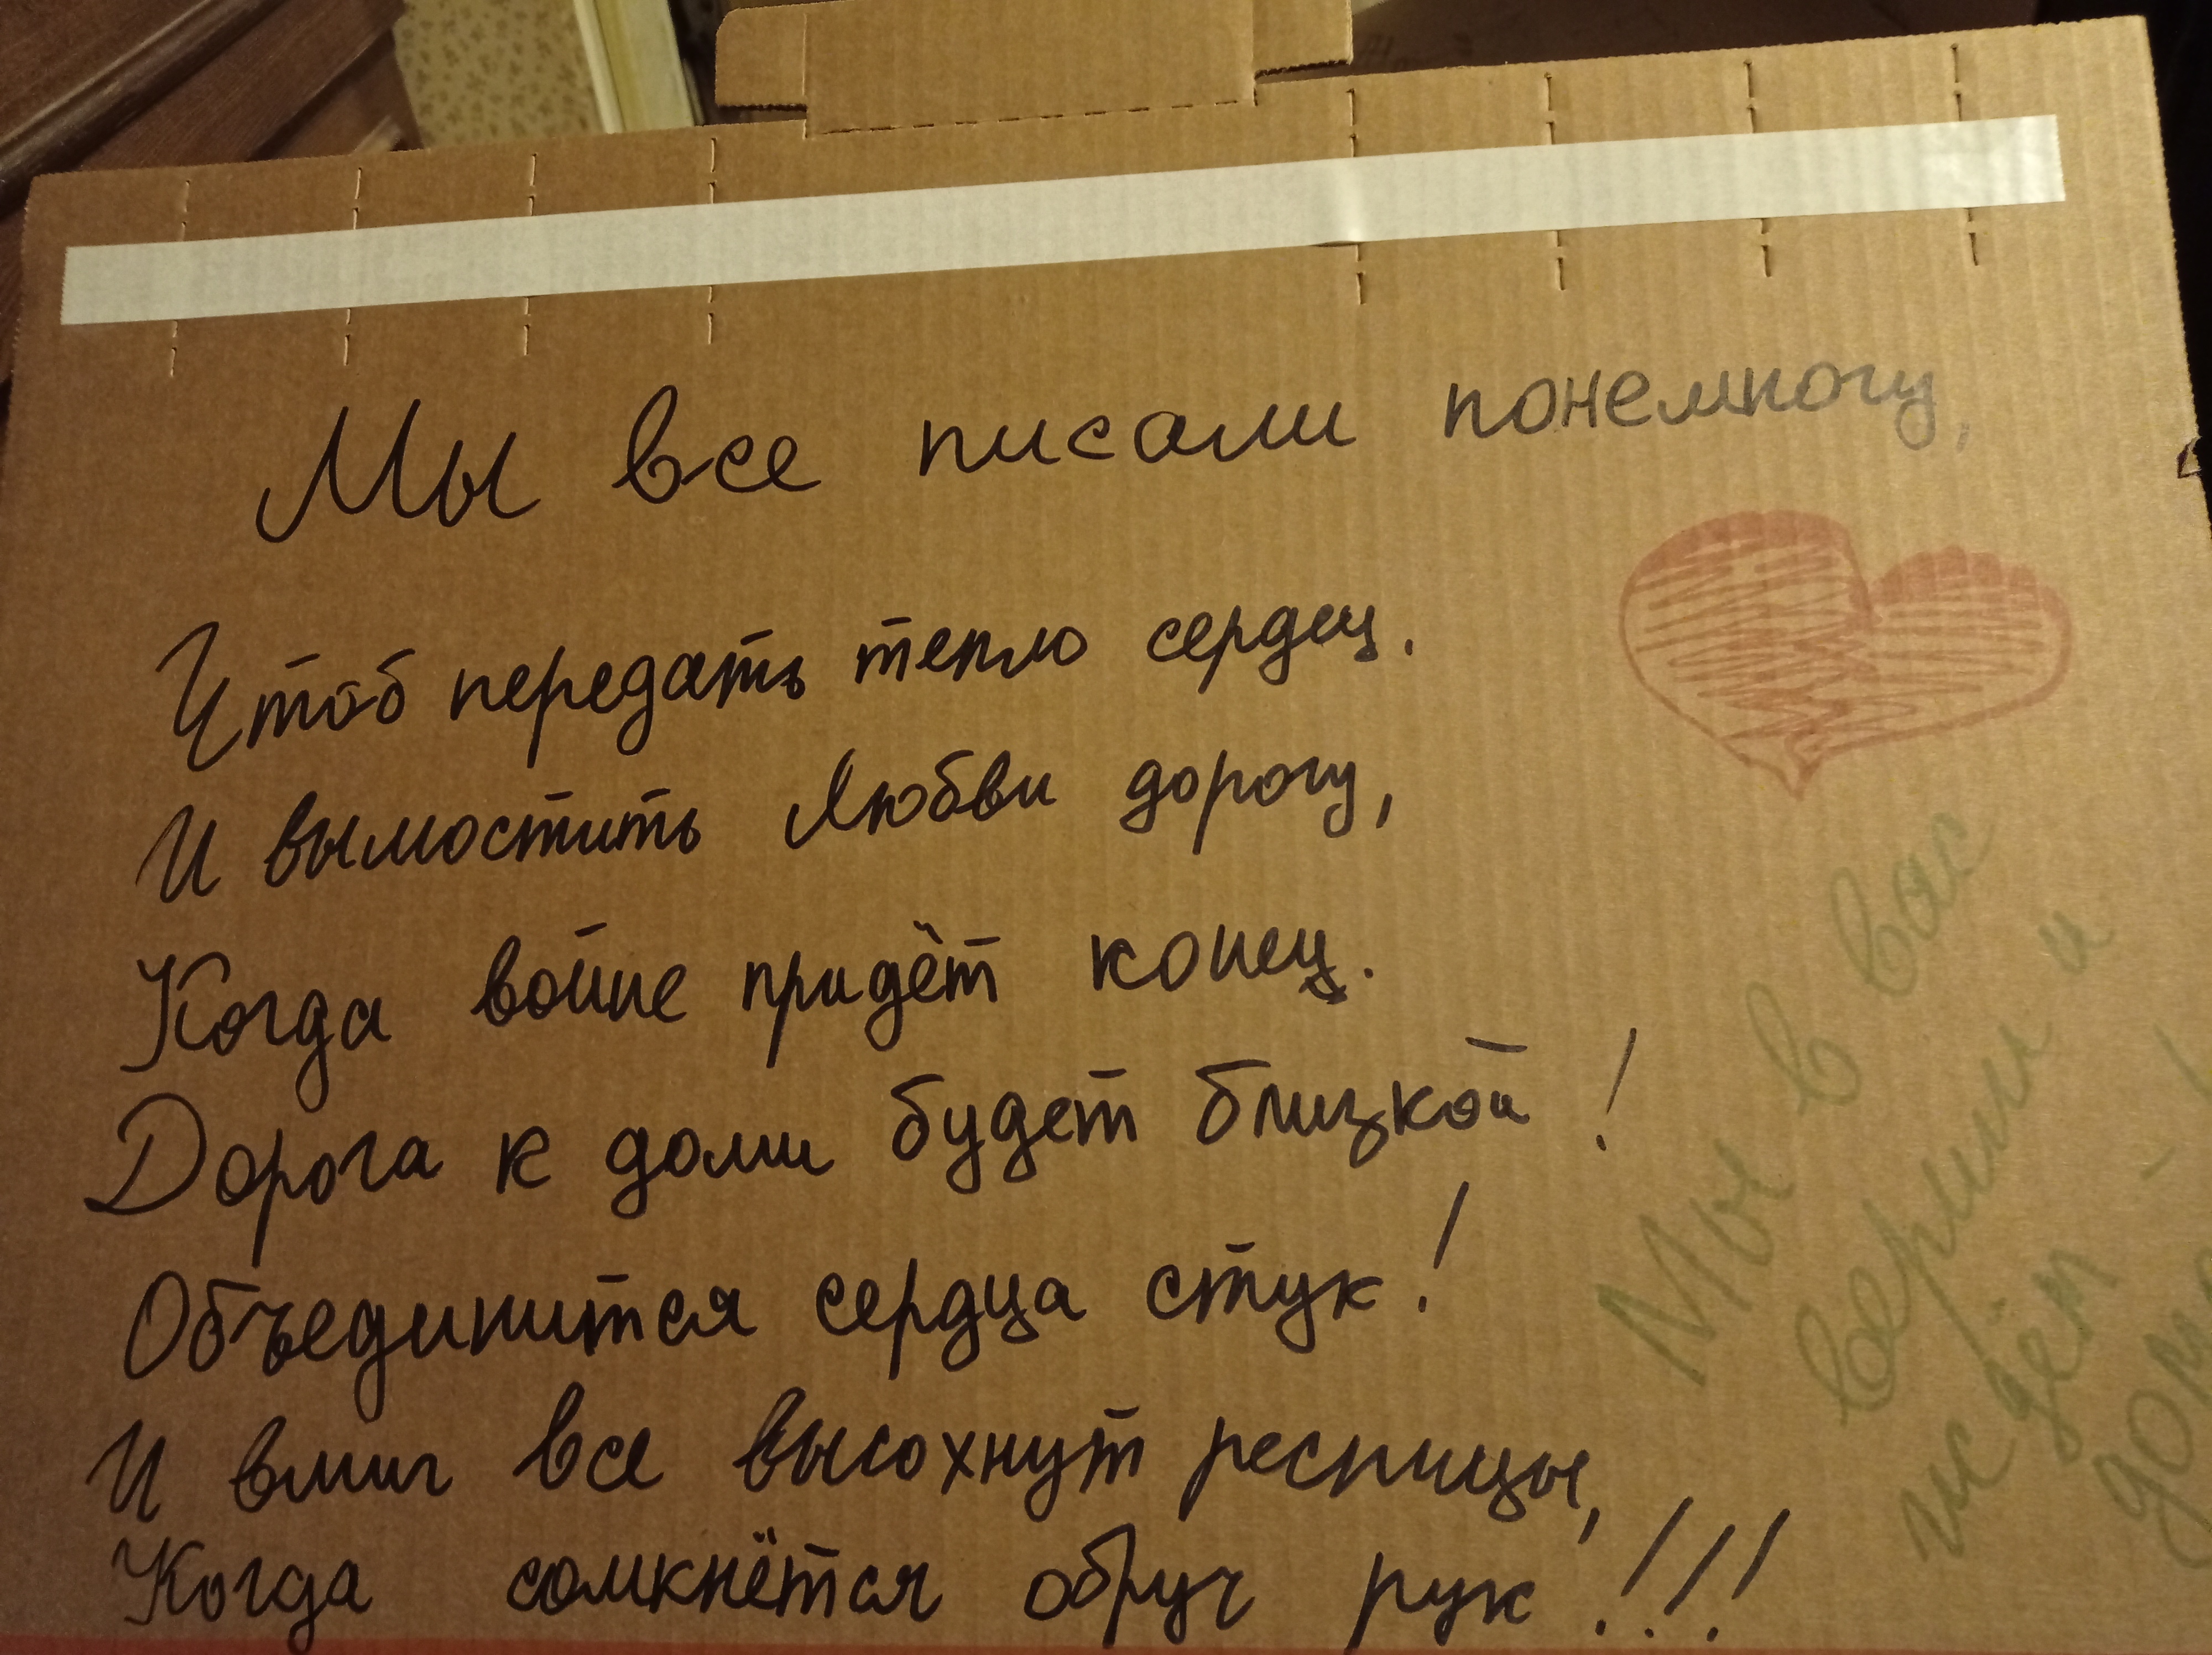 Мы все писали понемногу,
Чтоб передать тепло сердец.
И вымостить Любви дорогу,
Когда войне придёт конец.
Дорога к доми будет близкой!
Объединится сердца стук!
И вмиг все высохнут ресницы,
Когда сомкнётся обруч рук!!!
Мы в вас
верим и
ждём